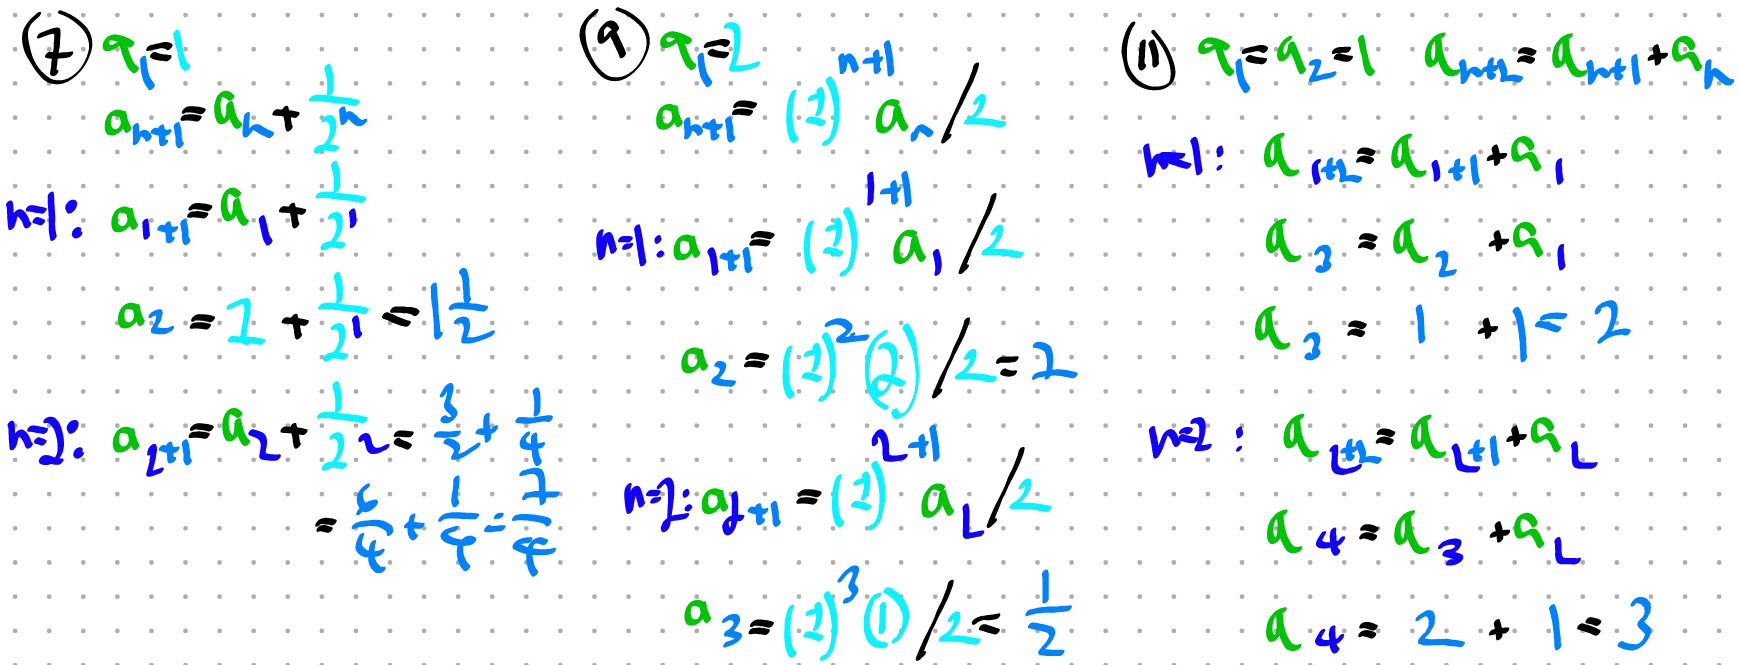 (7) a₁=1
aₙ₊₁=aₙ+1/2ⁿ
n=1: a₁₊₁=a₁+1/2¹
a₂=1+1/2¹=1 1/2
n=2: a₂₊₁=a₂+1/2²=3/2+1/4
=6/4+1/4=7/4
(9) a₁=2
aₙ₊₁=( )ⁿ⁺¹aₙ/2
n=1: a₁₊₁=( )¹⁺¹a₁/2
a₂=( )²(2)/2=
n=2: a₂₊₁=( )²⁺¹a₂/2
a₃=( )³(1)/2=1/2
(11) a₁=a₂=1 aₙ₊₂=aₙ₊₁+aₙ
n=1: a₁₊₂=a₁₊₁+a₁
a₃=a₂+a₁
a₃=1+1=2
n=2: a₂₊₂=a₂₊₁+a₂
a₄=a₃+a₂
a₄=2+1=3